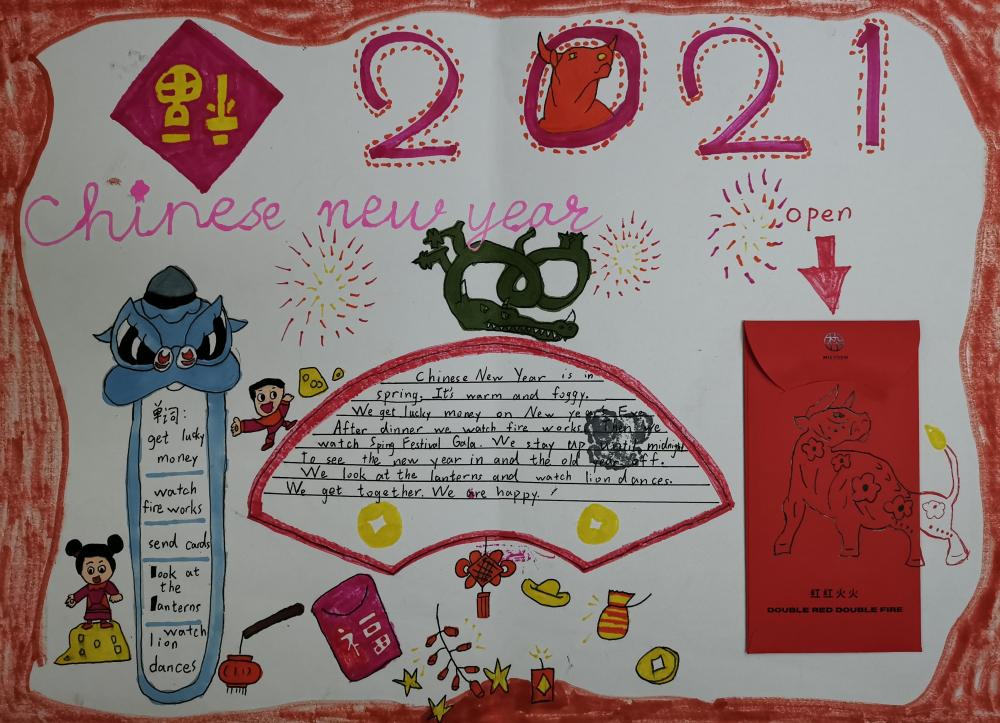 福
2021
Chinese new year
open
单词:
get lucky
money
watch
fire works
send cards
look at
the
lanterns
watch
lion
dances
Chinese New Year is in
spring. It's warm and foggy.
We get lucky money on New year's Eve.
After dinner we watch fire works. Then we
watch Sping Festival Gala. We stay up until midnight
To see the new year in and the old year off.
We look at the lanterns and watch lion dances.
We get together. We are happy.!
福
红红火火
DOUBLE RED DOUBLE FIRE